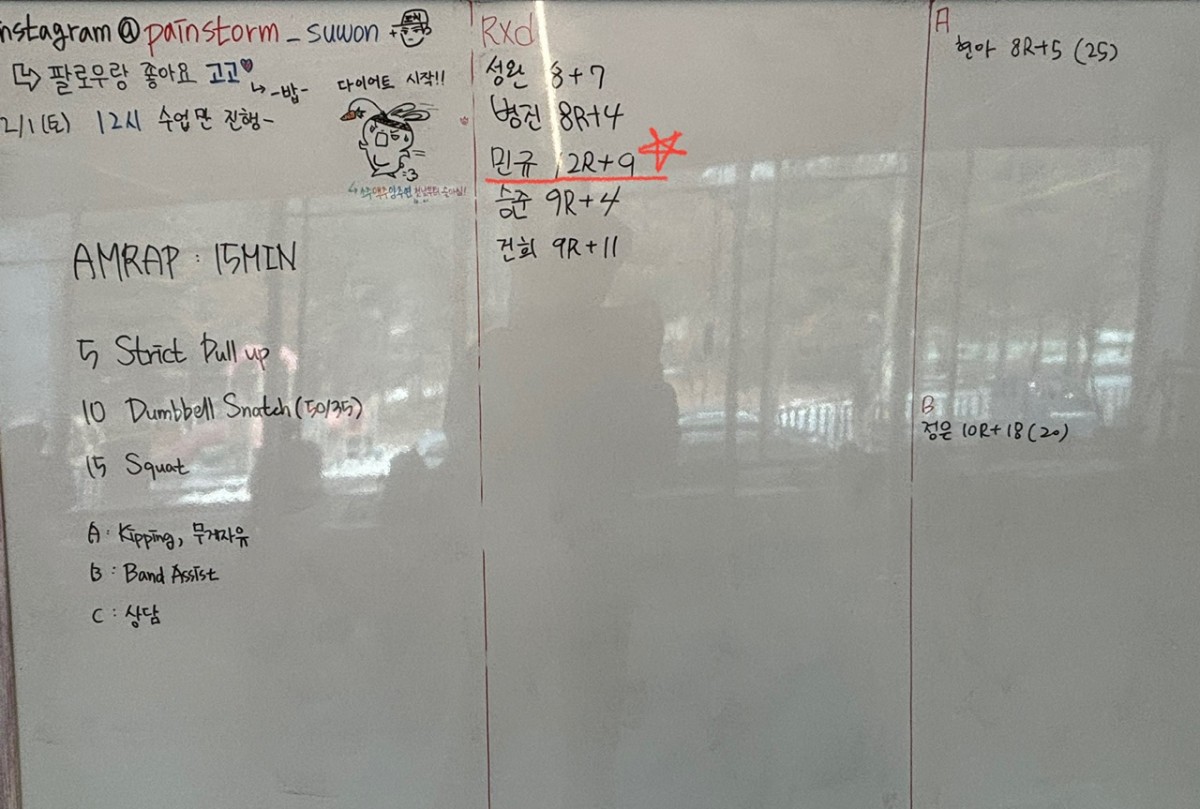 nstagram@painstorm_suwon +
팔로우랑 좋아요 고고
↳ -밥-
다이어트 시작!!
2/1(토) 12시 수업만 진행-
:3
AMRAP : 15MIN
5 Strict Pull up
10 Dumbbell Snatch(50/35)
15 Squat
A : Kipping, 무게자유
B : Band Assist
C : 상담
Rxd
성완 8+7
병진 8R+4
민규 12R+9
승준 9R+4
건희 9R+11
A
현아 8R+5 (25)
B
정은 10R+18(20)